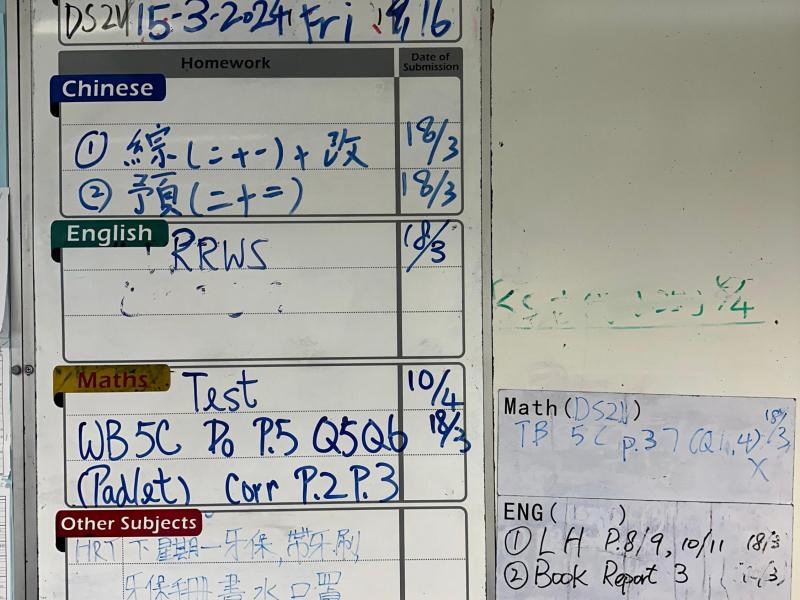 DS2V 15-3-2024 Fri
Homework
Date of Submission
Chinese
① 綜(二十一)+改 18/3
② 預(二十二) 18/3
English
RRWS 18/3
Maths
Test 10/4
WB 5C Do P.5 Q5Q6 18/3
(Padlet) Corr P.2 P.3
Other Subjects
HRT 下星期一牙保,帶牙刷,
牙保手冊 書 水 口罩
Math(DS2V)
TB 5C P.37 (Q1,4) 18/3
X
ENG( )
① LH P.8/9, 10/11 18/3
② Book Report 3